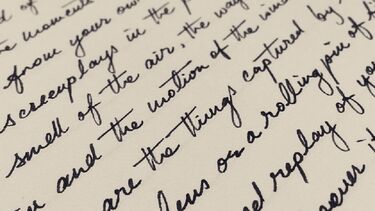 d of
e moments
from your own
screenplays in the p
smell of the air, the way
and the motion of the wind
are the things captured by
lens on a rolling pin of fi
d replay of you